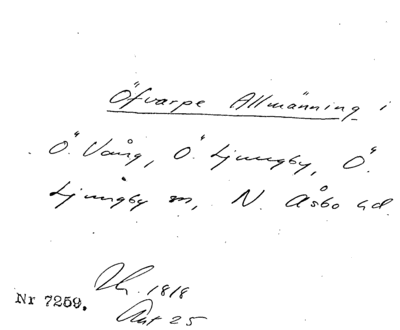 Öfvarpe Allmänning i
Ö. Vång, Ö. Ljungby, Ö.
Ljungby m, N. Åsbo hd.
1818
Nr 7259.
Akt 25